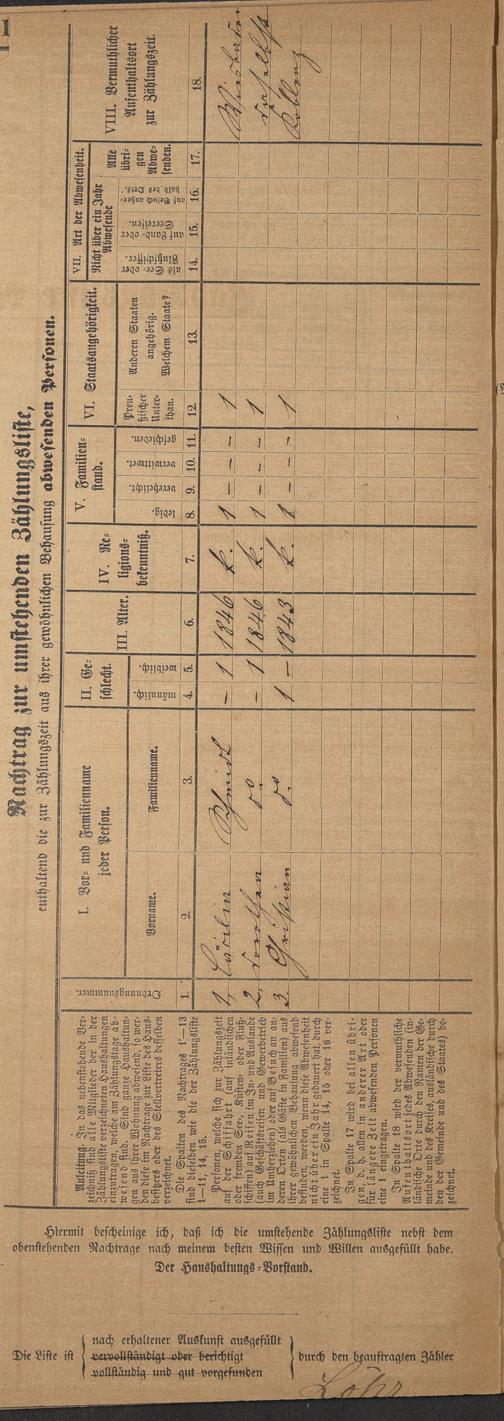 1
Nachtrag zur umstehenden Zählungsliste,
enthaltend die zur Zählungszeit aus ihrer gewöhnlichen Behausung abwesenden Personen.
Anleitung. In das nebenstehende Verzeichniß sind alle Mitglieder der in der
Zählungsliste verzeichneten Haushaltungen
einzutragen, welche am Zählungstage abwesend sind. Sind ganze Haushaltungen
aus ihrer Wohnung abwesend, so werden diese im Nachtrage zur Liste des Hausbesitzers oder des Stellvertreters desselben
verzeichnet.
Die Spalten des Nachtrages 1—13
sind dieselben wie die der Zählungsliste
1—11, 14, 15.
Personen, welche sich zur Zählungszeit
auf der Schiffahrt (auf inländischen
oder fremden See-, Küsten- oder Flußschiffen) auf Reisen im In- und Auslande
(auch Geschäftsreisen und Gewerbetrieb
im Umherziehen) oder auf Besuch an anderen Orten (als Gäste in Familien) aus
ihrer gewöhnlichen Behausung abwesend
befinden, werden, wenn diese Abwesenheit
nicht über ein Jahr gedauert hat, durch
eine 1 in Spalte 14, 15 oder 16 verzeichnet.
In Spalte 17 wird bei allen übrigen, d. h. allen in anderer Art oder
für längere Zeit abwesenden Personen
eine 1 eingetragen.
In Spalte 18 wird der vermuthliche
Aufenthaltsort des Abwesenden (inländische Orte durch den Namen der Gemeinde und des Kreises, ausländische durch
den der Gemeinde und des Staates) bezeichnet.
Ordnungsnummer.
I. Vor- und Familienname
jeder Person.
Vorname.
Familienname.
II. Geschlecht.
männlich.
weiblich.
III. Alter.
IV. Religionsbekenntniß.
V. Familienstand.
ledig.
verehelicht.
verwittwet.
geschieden.
VI. Staatsangehörigkeit.
Preußischer Unterthan.
Anderen Staaten
angehörig.
Welchem Staate?
VII. Art der Abwesenheit.
Nicht über ein Jahr
Abwesende
als See- oder
Flußschiffer.
auf Land- oder
Seereisen.
auf Besuch außerhalb des Orts.
Alle
übrigen
Abwesenden.
VIII. Vermuthlicher
Aufenthaltsort
zur Zählungszeit.
1. 2. 3. 4. 5. 6. 7. 8. 9. 10. 11. 12. 13. 14. 15. 16. 17. 18.
1. Cäcilia Schmidt – 1 1846 k. 1 – – – 1 Wiesbaden
2. Dorothea do – 1 1846 k. 1 – – – 1 daselbst
3. Christian do 1 – 1843 k. 1 – – – 1 Koblenz
Hiermit bescheinige ich, daß ich die umstehende Zählungsliste nebst dem
obenstehenden Nachtrage nach meinem besten Wissen und Willen ausgefüllt habe.
Der Haushaltungs-Vorstand.
Die Liste ist
nach erhaltener Auskunft ausgefüllt
vervollständigt oder berichtigt
vollständig und gut vorgefunden
durch den beauftragten Zähler
Löhr